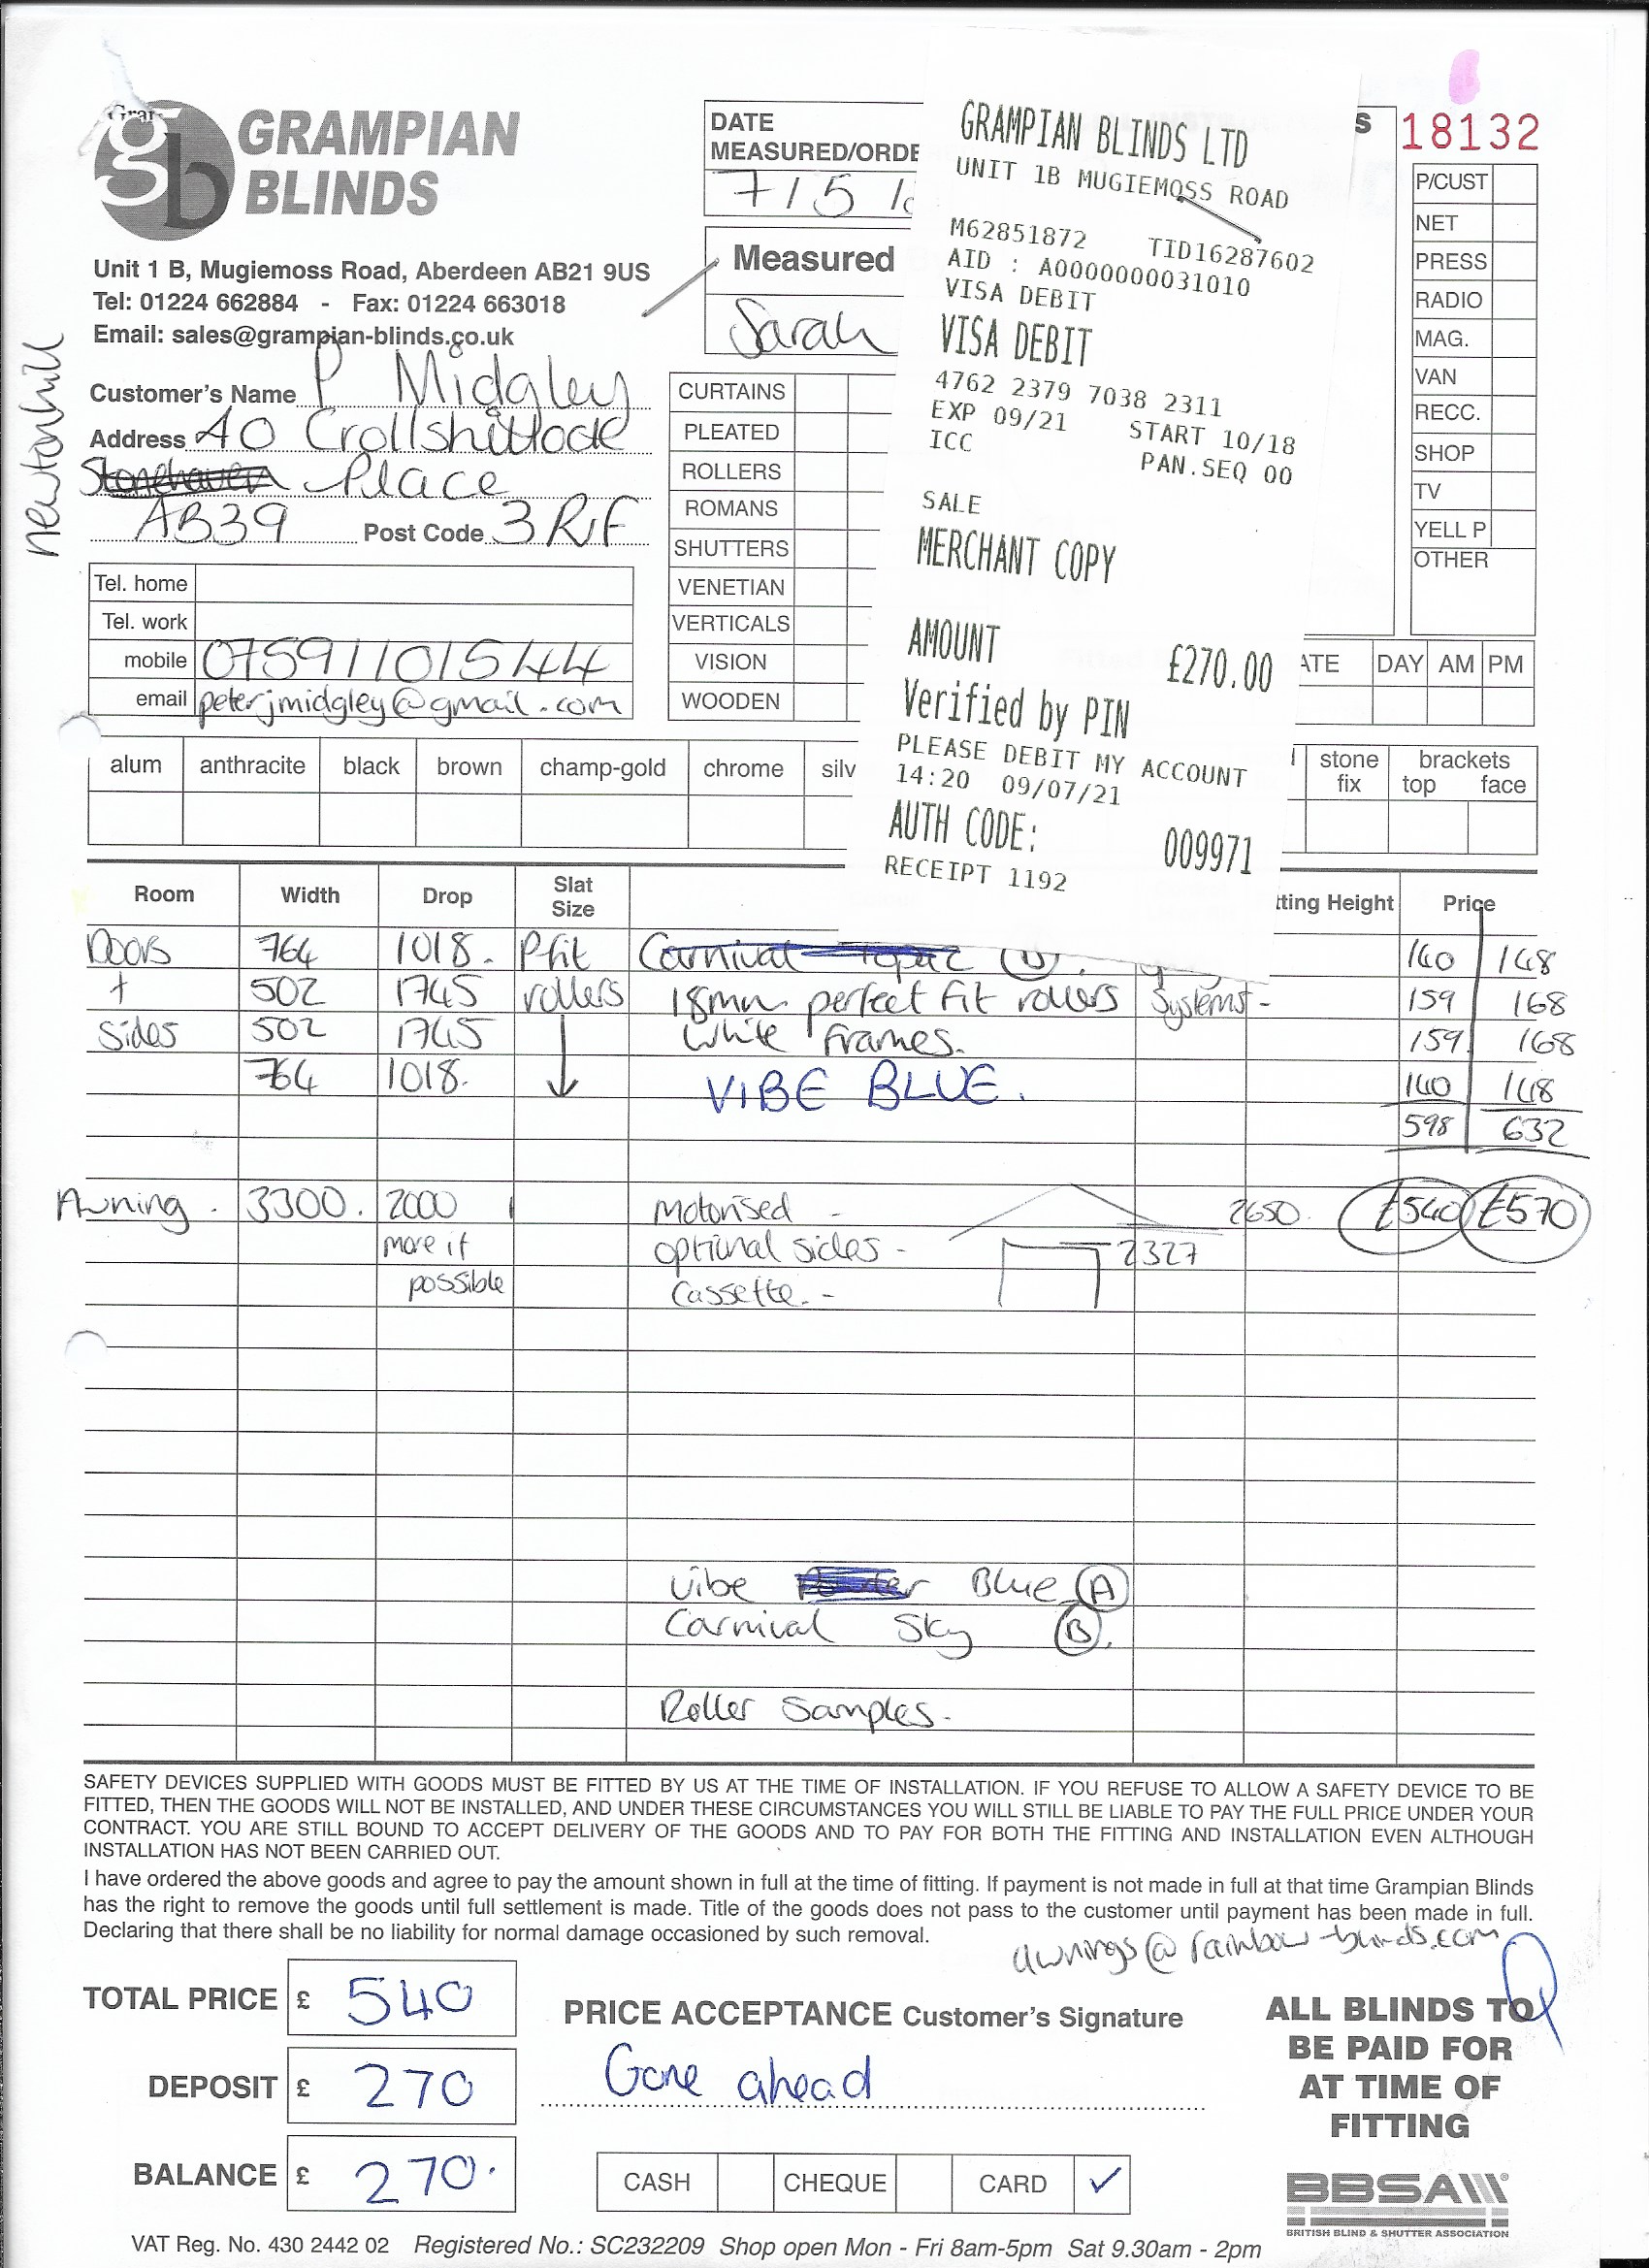 GRAMPIAN
BLINDS
Unit 1 B, Mugiemoss Road, Aberdeen AB21 9US
Tel: 01224 662884 - Fax: 01224 663018
Email: sales@grampian-blinds.co.uk
newtonhill
Customer's Name P Midgley
Address 40 Crollshillock
Place
AB39 Post Code 3RF
Tel. home
Tel. work
mobile 07591101544
email peterjmidgley@gmail.com
DATE
MEASURED/ORDE
7/5/
Measured
Sarah
CURTAINS
PLEATED
ROLLERS
ROMANS
SHUTTERS
VENETIAN
VERTICALS
VISION
WOODEN
GRAMPIAN BLINDS LTD
UNIT 1B MUGIEMOSS ROAD
M62851872 TID16287602
AID : A0000000031010
VISA DEBIT
VISA DEBIT
4762 2379 7038 2311
EXP 09/21 START 10/18
ICC PAN.SEQ 00
SALE
MERCHANT COPY
AMOUNT £270.00
Verified by PIN
PLEASE DEBIT MY ACCOUNT
14:20 09/07/21
AUTH CODE: 009971
RECEIPT 1192
S 18132
P/CUST
NET
PRESS
RADIO
MAG.
VAN
RECC.
SHOP
TV
YELL P
OTHER
ATE DAY AM PM
alum anthracite black brown champ-gold chrome silv stone fix brackets top face
Room Width Drop Slat Size tting Height Price
Doors 764 1018. Pfit Carnival Topaz (B). 140 148
+ 502 1745 rollers 18mm perfect fit rollers Systems - 159 168
Sides 502 1745 White frames. 159 168
764 1018. VIBE BLUE. 140 148
598 632
Awning. 3300. 2000 Motorised - 2650. £540 £570
more if optional sides - 2327
possible Cassette. -
Vibe Blue (A)
Carnival Sky (B).
Roller Samples.
SAFETY DEVICES SUPPLIED WITH GOODS MUST BE FITTED BY US AT THE TIME OF INSTALLATION. IF YOU REFUSE TO ALLOW A SAFETY DEVICE TO BE
FITTED, THEN THE GOODS WILL NOT BE INSTALLED, AND UNDER THESE CIRCUMSTANCES YOU WILL STILL BE LIABLE TO PAY THE FULL PRICE UNDER YOUR
CONTRACT. YOU ARE STILL BOUND TO ACCEPT DELIVERY OF THE GOODS AND TO PAY FOR BOTH THE FITTING AND INSTALLATION EVEN ALTHOUGH
INSTALLATION HAS NOT BEEN CARRIED OUT.
I have ordered the above goods and agree to pay the amount shown in full at the time of fitting. If payment is not made in full at that time Grampian Blinds
has the right to remove the goods until full settlement is made. Title of the goods does not pass to the customer until payment has been made in full.
Declaring that there shall be no liability for normal damage occasioned by such removal.
awnings@rainbow-blinds.com
TOTAL PRICE £ 540
DEPOSIT £ 270
BALANCE £ 270.
PRICE ACCEPTANCE Customer's Signature
Gone ahead
CASH CHEQUE CARD ✓
ALL BLINDS TO
BE PAID FOR
AT TIME OF
FITTING
BBSA
BRITISH BLIND & SHUTTER ASSOCIATION
VAT Reg. No. 430 2442 02 Registered No.: SC232209 Shop open Mon - Fri 8am-5pm Sat 9.30am - 2pm